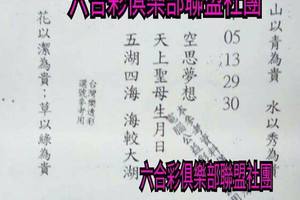 六合彩俱樂部聯盟社團
山以青為貴 水以秀為貴
05 13 29 30
空思夢想
天上聖母生月日
五湖四海 海較大湖
台灣樂透彩
選號參考用
花以潔為貴;草以綠為貴
六合彩俱樂部聯盟社團